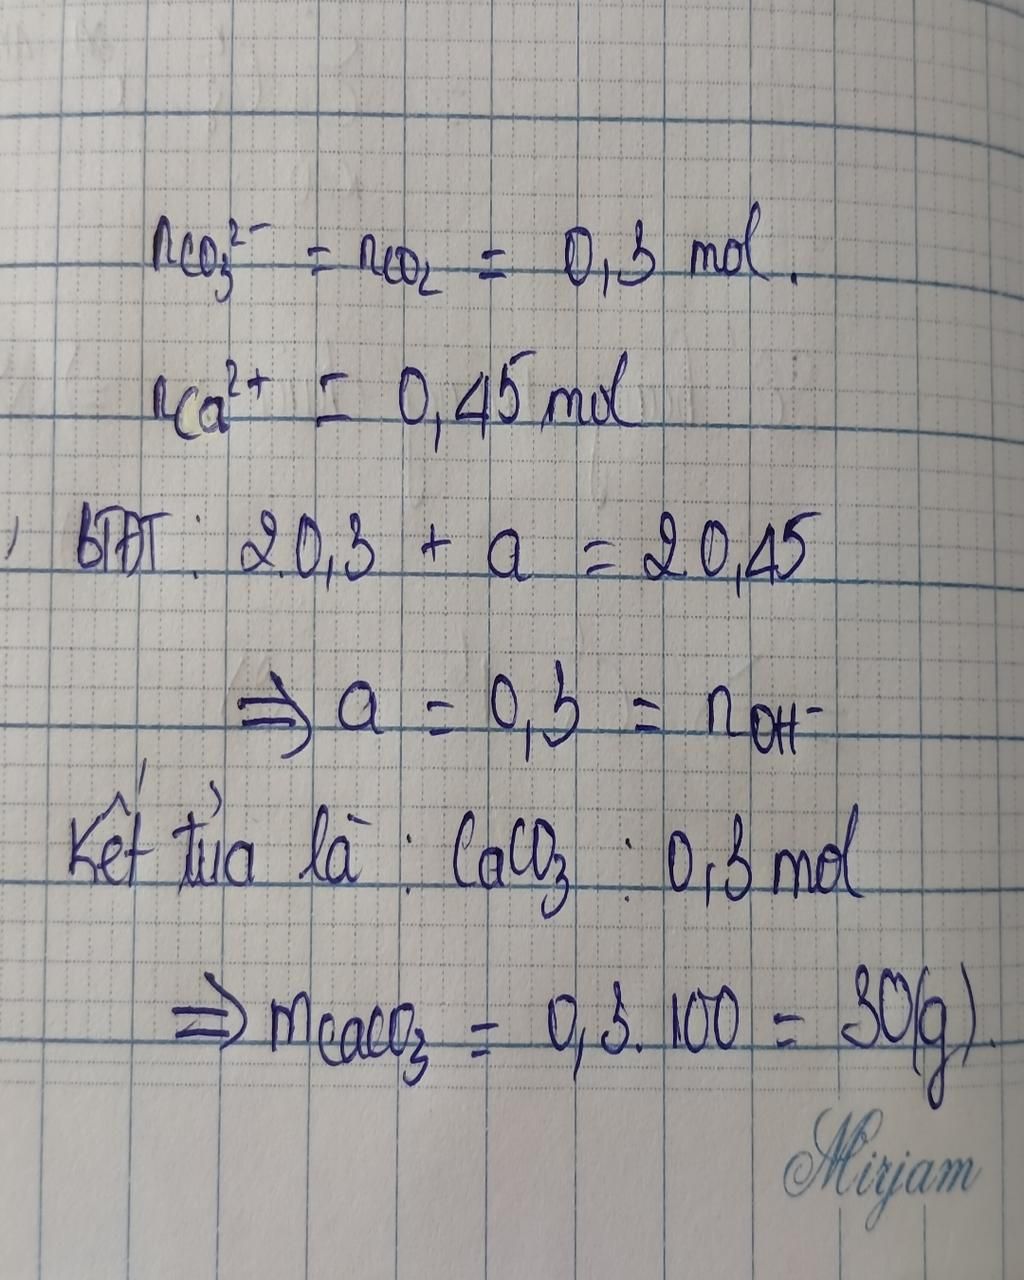 nCO₃²⁻ = nCO₂ = 0,3 mol.
nCa²⁺ = 0,45 mol
, BTĐT: 2.0,3 + a = 2 0,45
⇒ a = 0,3 = nOH⁻
Kết tủa là : CaCO₃ : 0,3 mol
⇒ mCaCO₃ = 0,3. 100 = 30(g).
Mirjam